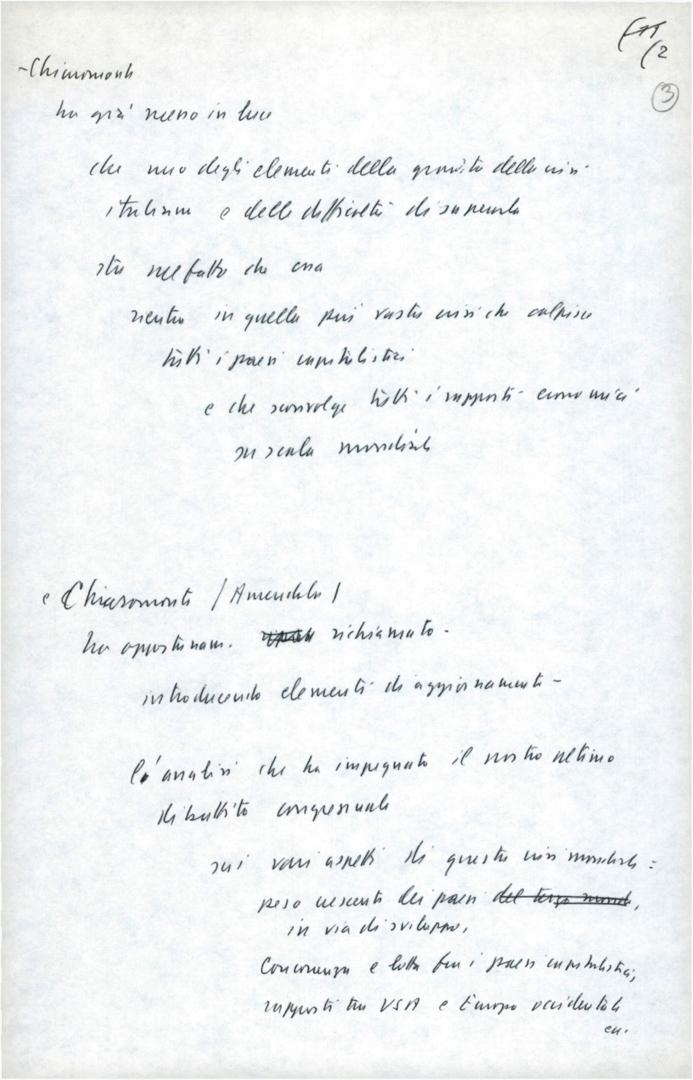 12
3
- Chiaromonte
ha già messo in luce
che uno degli elementi della gravità della crisi
italiana e delle difficoltà di superarla
sta nel fatto che essa
rientra in quella più vasta crisi che colpisce
tutti i paesi capitalistici
e che sconvolge tutti i rapporti economici
su scala mondiale
e Chiaromonte / Amendola /
ha opportunam. richiamato -
introducendo elementi di aggiornamento -
l'analisi che ha impegnato il nostro ultimo
dibattito congressuale
sui vari aspetti di questa crisi mondiale:
peso crescente dei paesi del terzo mondo,
in via di sviluppo,
Concorrenza e lotta fra i paesi capitalistici,
rapporti tra USA e Europa occidentale
ecc.